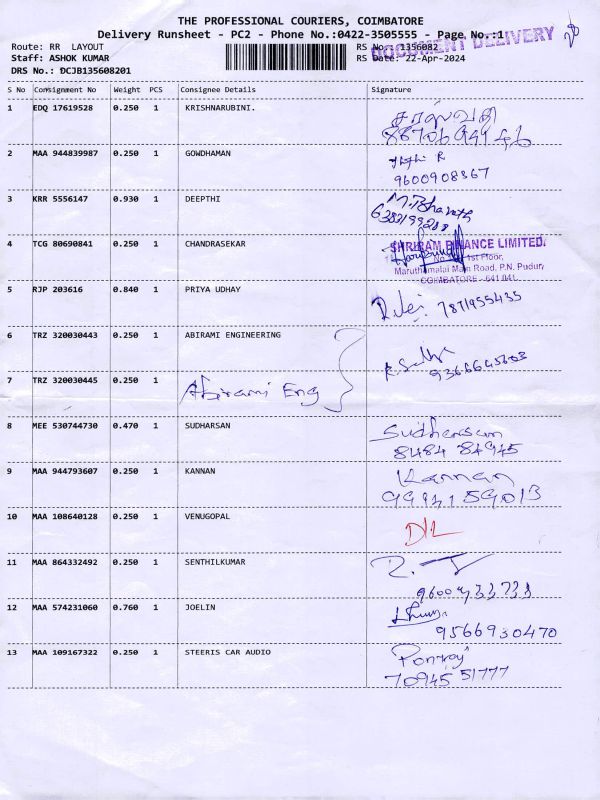 THE PROFESSIONAL COURIERS, COIMBATORE
Delivery Runsheet - PC2 - Phone No.:0422-3505555 - Page No.:1
Route: RR LAYOUT
RS No.: 1356082
DOCUMENT DELIVERY
Staff: ASHOK KUMAR
RS Date: 22-Apr-2024
DRS No.: DCJB135608201
S No Consignment No Weight PCS Consignee Details Signature
1 EDQ 17619528 0.250 1 KRISHNARUBINI.
சரஸ்வதி
2 MAA 944839987 0.250 1 GOWDHAMAN
9600908367
3 KRR 5556147 0.930 1 DEEPTHI
M.Bharath
6383199288
4 TCG 80690841 0.250 1 CHANDRASEKAR
SHRIRAM FINANCE LIMITED.
1st Floor,
Maruthamalai Main Road, P.N. Pudur,
COIMBATORE - 641 041.
5 RJP 203616 0.840 1 PRIYA UDHAY
7871955435
6 TRZ 320030443 0.250 1 ABIRAMI ENGINEERING
9366645603
7 TRZ 320030445 0.250 1
Abirami Eng
8 MEE 530744730 0.470 1 SUDHARSAN
Sudharsan
8484 84945
9 MAA 944793607 0.250 1 KANNAN
Kannan
9994159013
10 MAA 108640128 0.250 1 VENUGOPAL
D/L
11 MAA 864332492 0.250 1 SENTHILKUMAR
12 MAA 574231060 0.760 1 JOELIN
9566930470
13 MAA 109167322 0.250 1 STEERIS CAR AUDIO
Ponraj
70945 51777